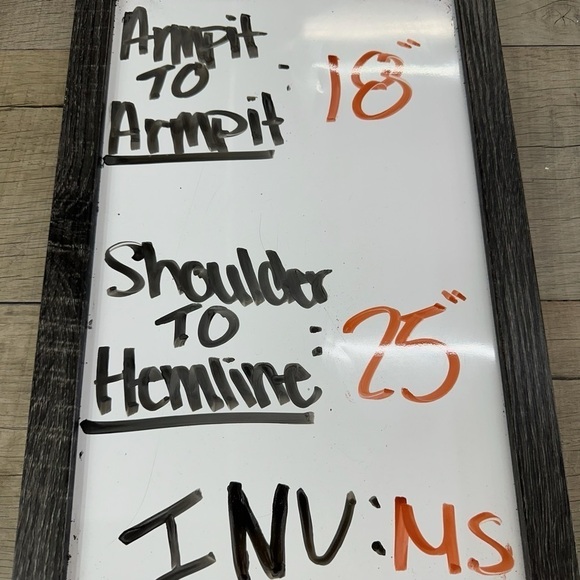 Armpit
TO : 18"
Armpit
Shoulder
TO : 25"
Hemline
INV: MS